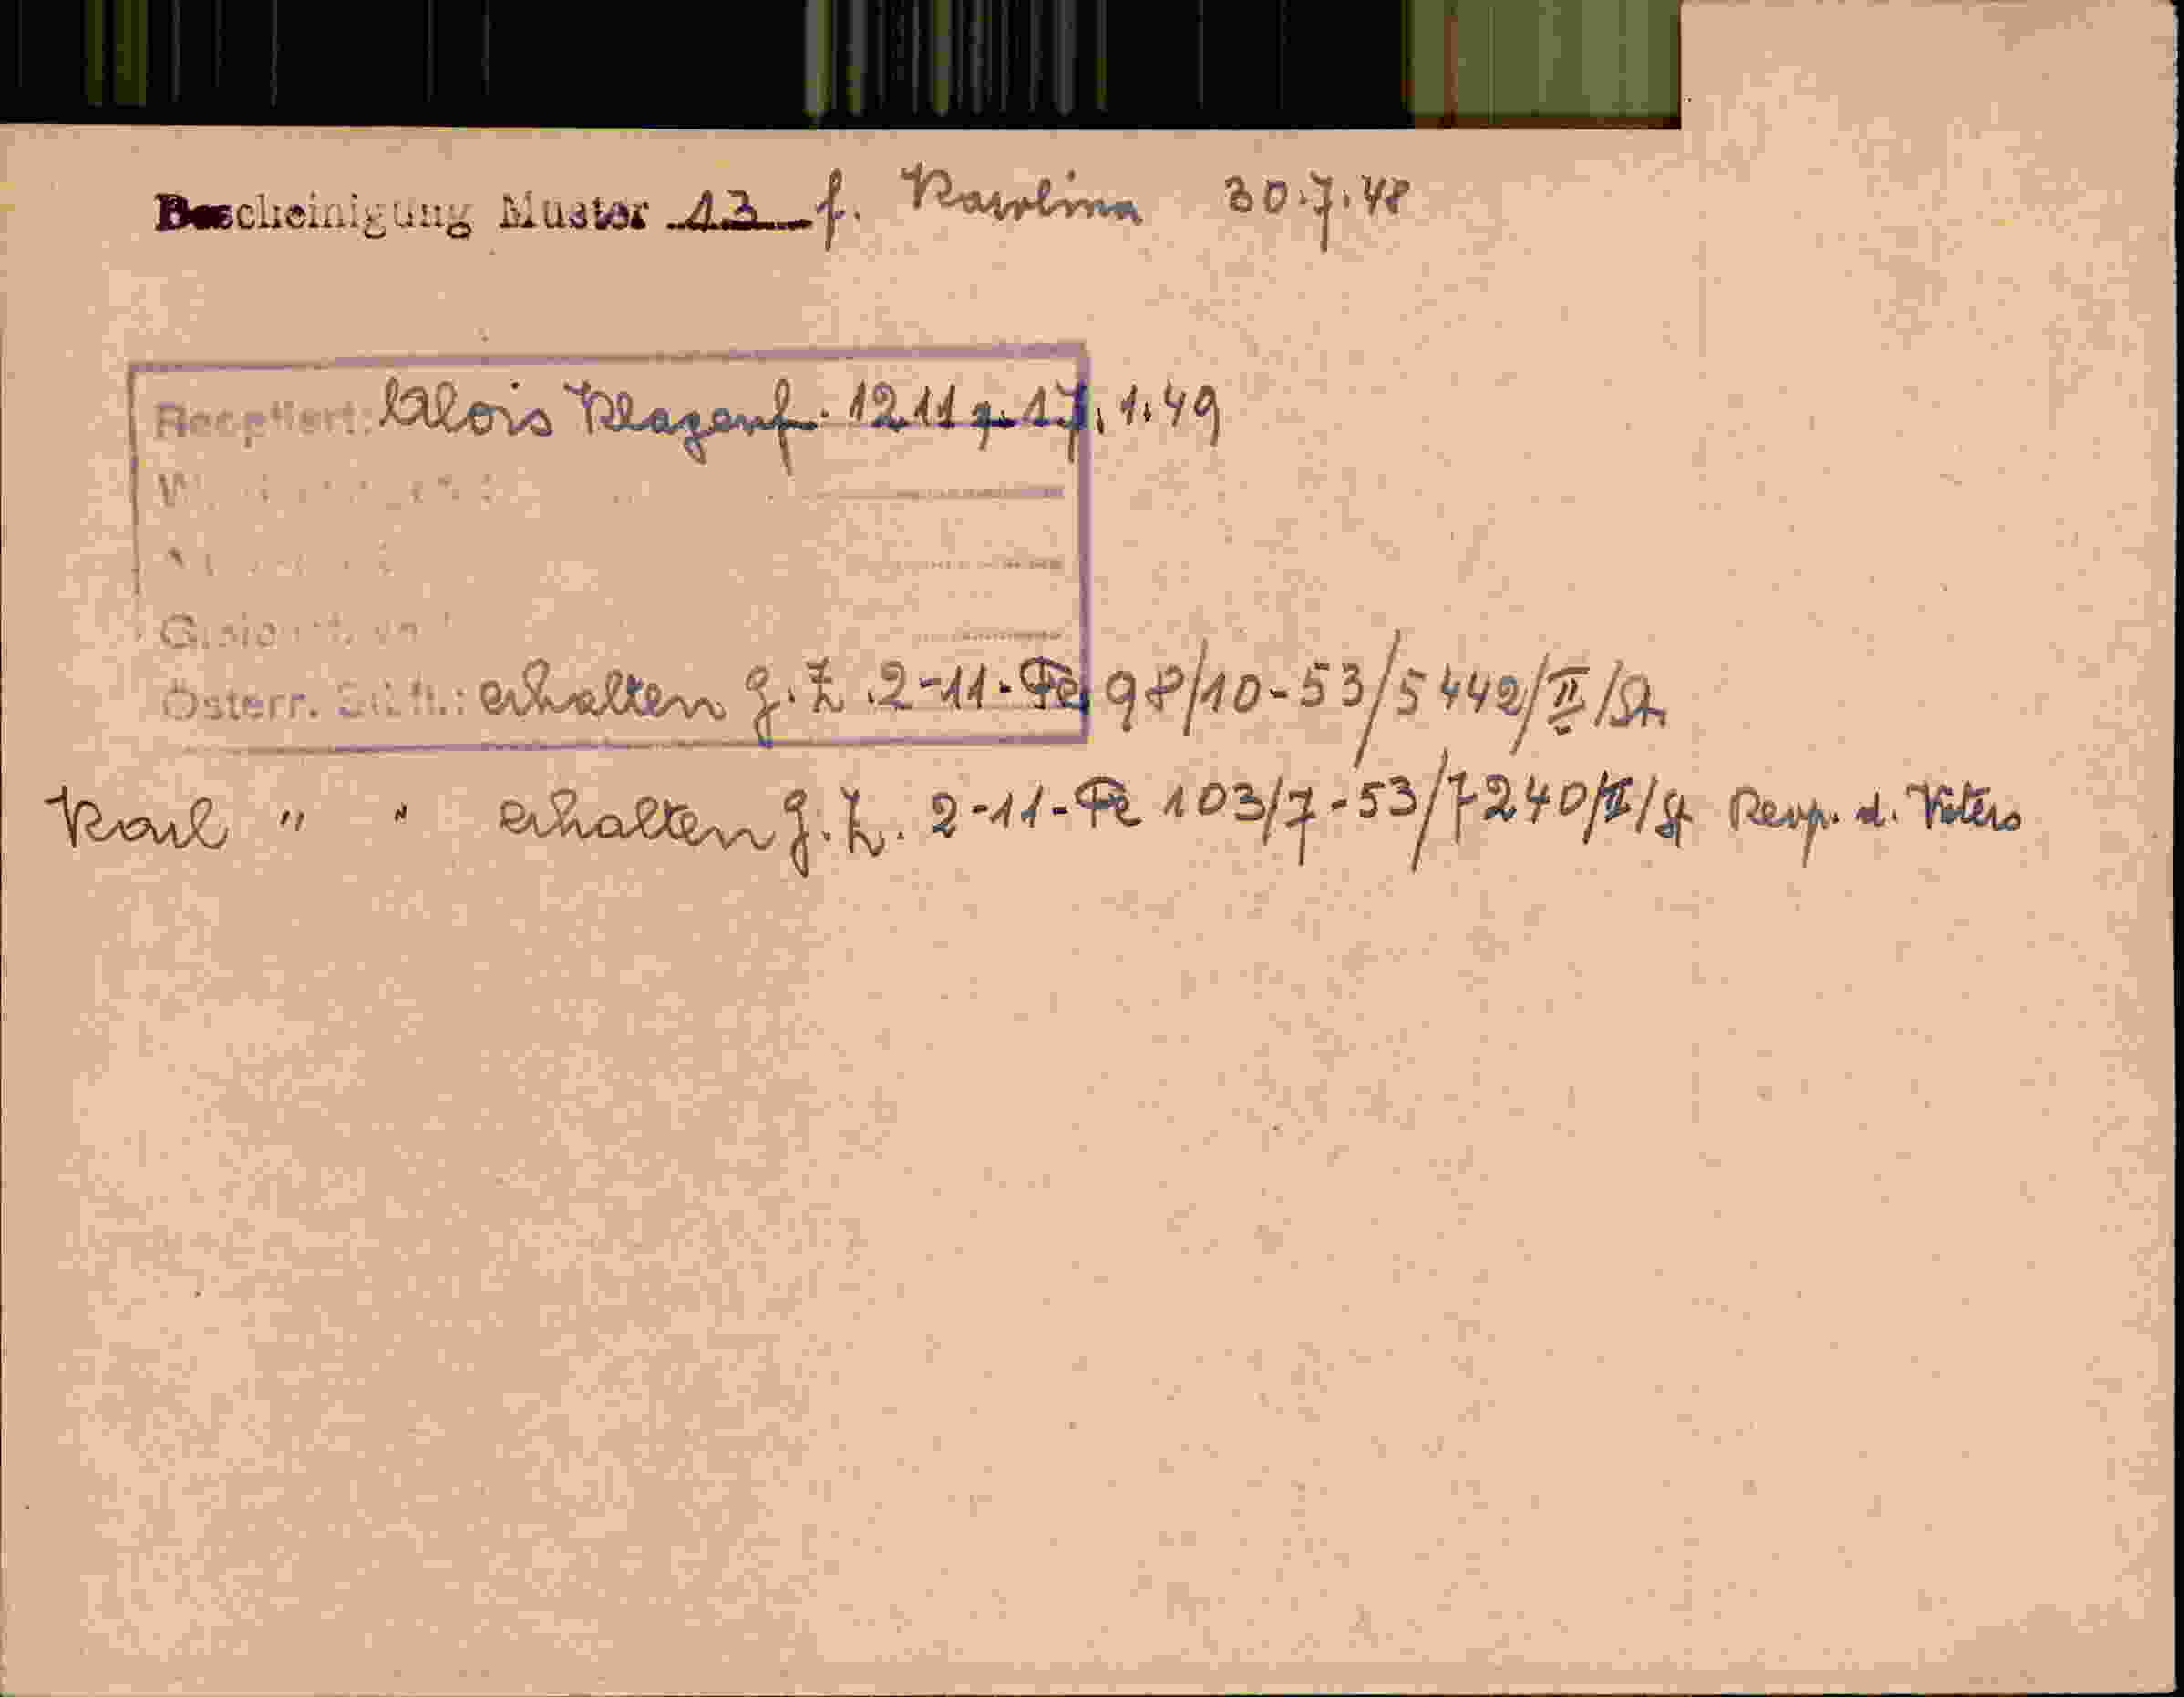 Bescheinigung Muster 13 f. Karolina 30.7.48
Reoptiert: Alois Klagenf. 1211 g. 17.1.49
Österr. erhalten g. Z. 2-11-Fe 98/10-53/5442/II/St
Karl " " erhalten g. Z. 2-11-Fe 103/7-53/7240/II/St Reop. d. Vaters